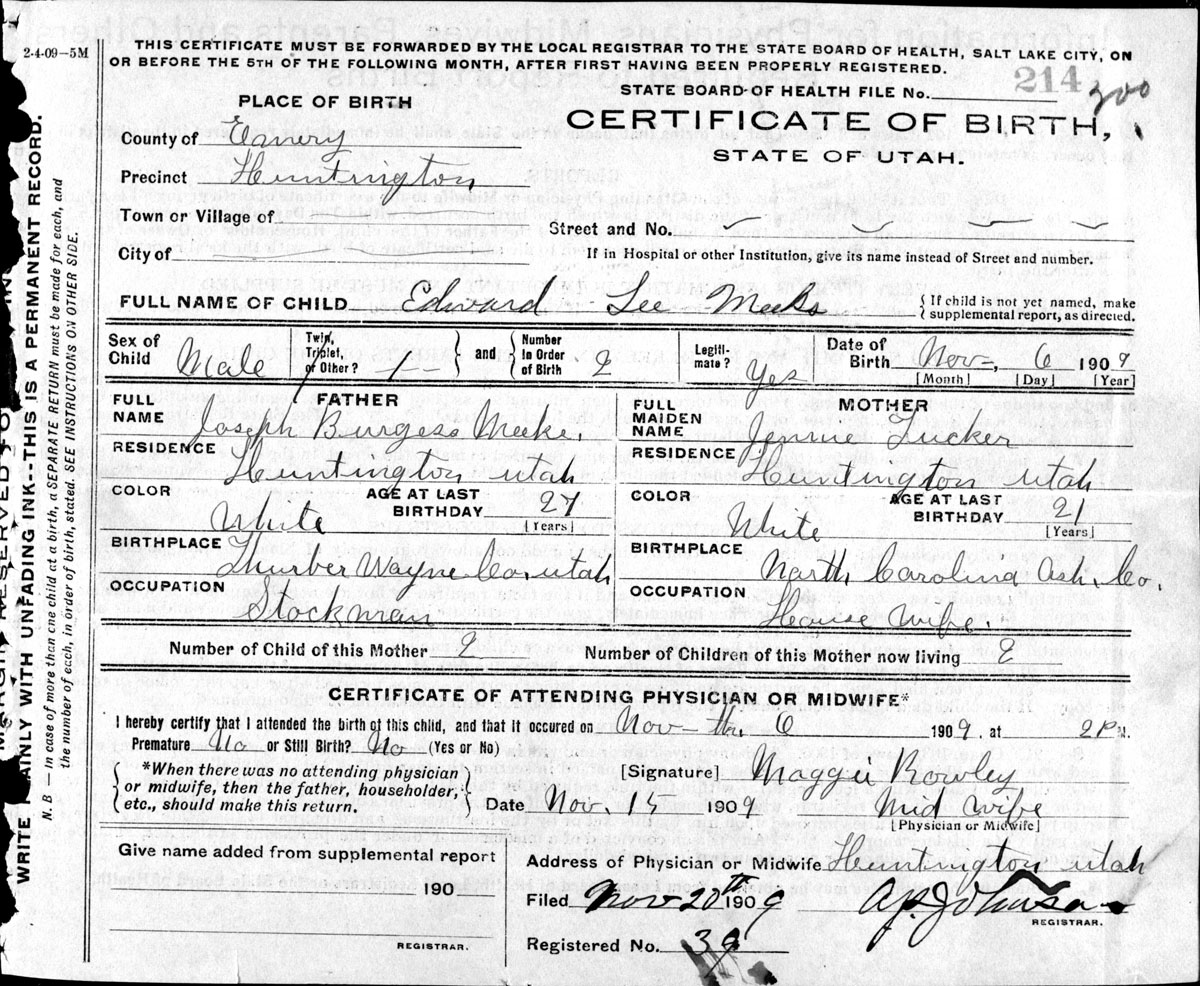 2-4-09—5M
THIS CERTIFICATE MUST BE FORWARDED BY THE LOCAL REGISTRAR TO THE STATE BOARD OF HEALTH, SALT LAKE CITY, ON
OR BEFORE THE 5TH OF THE FOLLOWING MONTH, AFTER FIRST HAVING BEEN PROPERLY REGISTERED.
STATE BOARD OF HEALTH FILE No. 214 300
PLACE OF BIRTH
CERTIFICATE OF BIRTH,
STATE OF UTAH.
County of Emery
Precinct Huntington
Town or Village of
Street and No.
City of
If in Hospital or other Institution, give its name instead of Street and number.
FULL NAME OF CHILD Edward Lee Meeks
{ If child is not yet named, make
supplemental report, as directed.
Sex of Child Male
Twin, Triplet, or Other?
and
Number In Order of Birth 2
Legitimate? Yes
Date of Birth Nov—, 6 1909
[Month] [Day] [Year]
FATHER
FULL NAME Joseph Burgess Meeks.
RESIDENCE Huntington utah
COLOR White
AGE AT LAST BIRTHDAY 27
[Years]
BIRTHPLACE Thurber Wayne Co. utah
OCCUPATION Stockman
MOTHER
FULL MAIDEN NAME Jennie Tucker
RESIDENCE Huntington utah
COLOR White
AGE AT LAST BIRTHDAY 21
[Years]
BIRTHPLACE North Carolina Ash. Co.
OCCUPATION House Wife.
Number of Child of this Mother 2
Number of Children of this Mother now living 2
CERTIFICATE OF ATTENDING PHYSICIAN OR MIDWIFE*
I hereby certify that I attended the birth of this child, and that it occured on Nov— the 6 1909 at 2 P M.
Premature No or Still Birth? No (Yes or No)
*When there was no attending physician
or midwife, then the father, householder,
etc., should make this return.
[Signature] Maggie Rowley
Date Nov. 15 1909
Mid Wife
[Physician or Midwife]
Give name added from supplemental report
190
REGISTRAR.
Address of Physician or Midwife Huntington utah
Filed Nov 20th 1909
A. P. Johnson
REGISTRAR.
Registered No. 39
WRITE PLAINLY WITH UNFADING INK--THIS IS A PERMANENT RECORD.
N. B — In case of more than one child at a birth, a SEPARATE RETURN must be made for each, and
the number of each, in order of birth, stated. SEE INSTRUCTIONS ON OTHER SIDE.